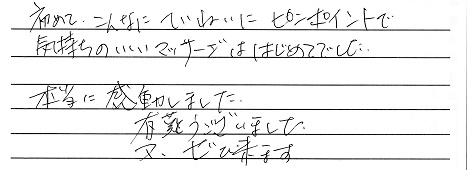 初めて、こんなに ていねいに ピンポイントで
気持ちのいいマッサージは はじめてでした。
本当に 感動しました。
有難うございました。
又、ぜひ来ます